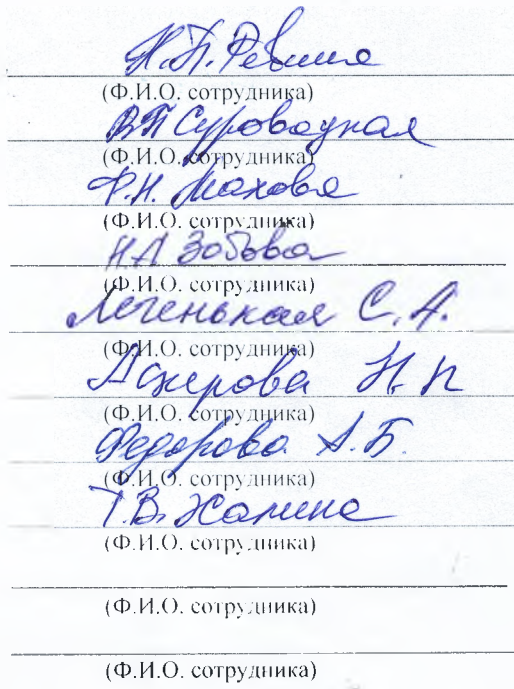 Н.П. Ревина
(Ф.И.О. сотрудника)
ВП Суроводная
(Ф.И.О. сотрудника)
Ф.Н. Махова
(Ф.И.О. сотрудника)
НА Зобова
(Ф.И.О. сотрудника)
Легенькая С.А.
(Ф.И.О. сотрудника)
Н.П
(Ф.И.О. сотрудника)
Федорова А.Б.
(Ф.И.О. сотрудника)
Т.В. Халина
(Ф.И.О. сотрудника)
(Ф.И.О. сотрудника)
(Ф.И.О. сотрудника)